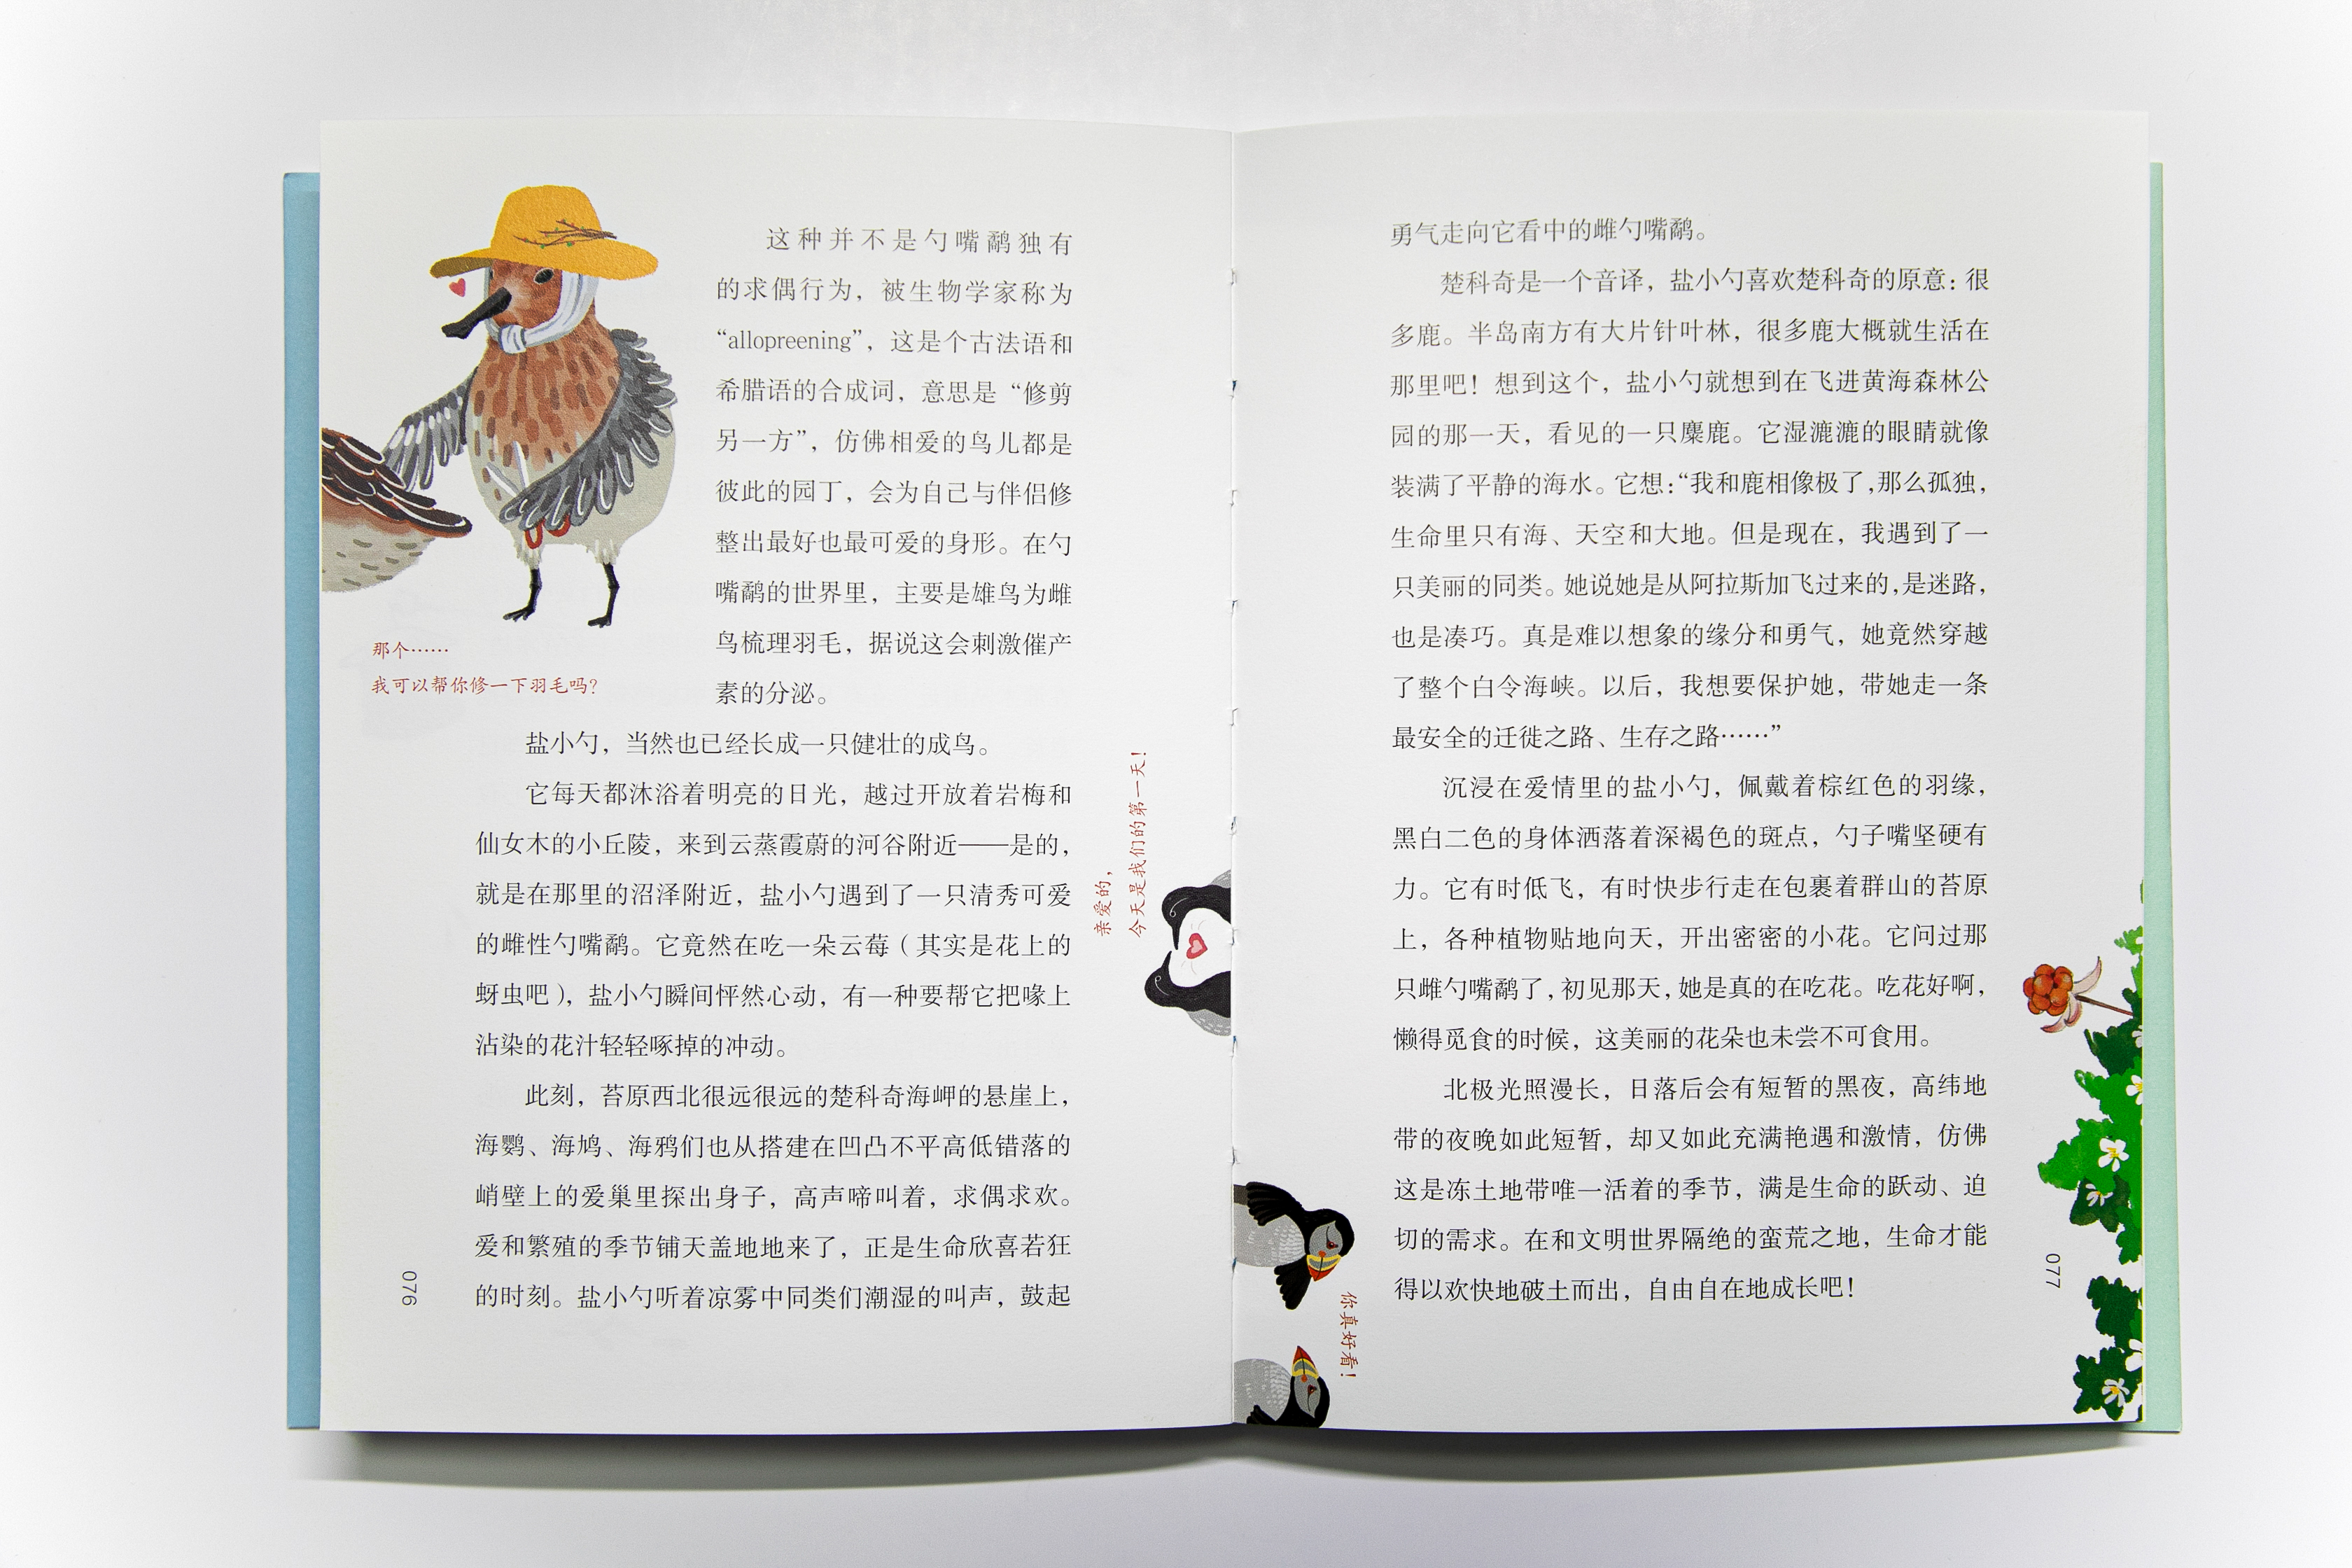 这种并不是勺嘴鹬独有
的求偶行为，被生物学家称为
“allopreening”，这是个古法语和
希腊语的合成词，意思是“修剪
另一方”，仿佛相爱的鸟儿都是
彼此的园丁，会为自己与伴侣修
整出最好也最可爱的身形。在勺
嘴鹬的世界里，主要是雄鸟为雌
鸟梳理羽毛，据说这会刺激催产
素的分泌。
那个……
我可以帮你修一下羽毛吗？
盐小勺，当然也已经长成一只健壮的成鸟。
它每天都沐浴着明亮的日光，越过开放着岩梅和
仙女木的小丘陵，来到云蒸霞蔚的河谷附近——是的，
就是在那里的沼泽附近，盐小勺遇到了一只清秀可爱
的雌性勺嘴鹬。它竟然在吃一朵云莓（其实是花上的
蚜虫吧），盐小勺瞬间怦然心动，有一种要帮它把喙上
沾染的花汁轻轻啄掉的冲动。
此刻，苔原西北很远很远的楚科奇海岬的悬崖上，
海鹦、海鸠、海鸦们也从搭建在凹凸不平高低错落的
峭壁上的爱巢里探出身子，高声啼叫着，求偶求欢。
爱和繁殖的季节铺天盖地地来了，正是生命欣喜若狂
的时刻。盐小勺听着凉雾中同类们潮湿的叫声，鼓起
076
亲爱的，
今天是我们的第一天！
勇气走向它看中的雌勺嘴鹬。
楚科奇是一个音译，盐小勺喜欢楚科奇的原意：很
多鹿。半岛南方有大片针叶林，很多鹿大概就生活在
那里吧！想到这个，盐小勺就想到在飞进黄海森林公
园的那一天，看见的一只麋鹿。它湿漉漉的眼睛就像
装满了平静的海水。它想：“我和鹿相像极了，那么孤独，
生命里只有海、天空和大地。但是现在，我遇到了一
只美丽的同类。她说她是从阿拉斯加飞过来的，是迷路，
也是凑巧。真是难以想象的缘分和勇气，她竟然穿越
了整个白令海峡。以后，我想要保护她，带她走一条
最安全的迁徙之路、生存之路……”
沉浸在爱情里的盐小勺，佩戴着棕红色的羽缘，
黑白二色的身体洒落着深褐色的斑点，勺子嘴坚硬有
力。它有时低飞，有时快步行走在包裹着群山的苔原
上，各种植物贴地向天，开出密密的小花。它问过那
只雌勺嘴鹬了，初见那天，她是真的在吃花。吃花好啊，
懒得觅食的时候，这美丽的花朵也未尝不可食用。
北极光照漫长，日落后会有短暂的黑夜，高纬地
带的夜晚如此短暂，却又如此充满艳遇和激情，仿佛
这是冻土地带唯一活着的季节，满是生命的跃动、迫
切的需求。在和文明世界隔绝的蛮荒之地，生命才能
得以欢快地破土而出，自由自在地成长吧！
你真好看！
077